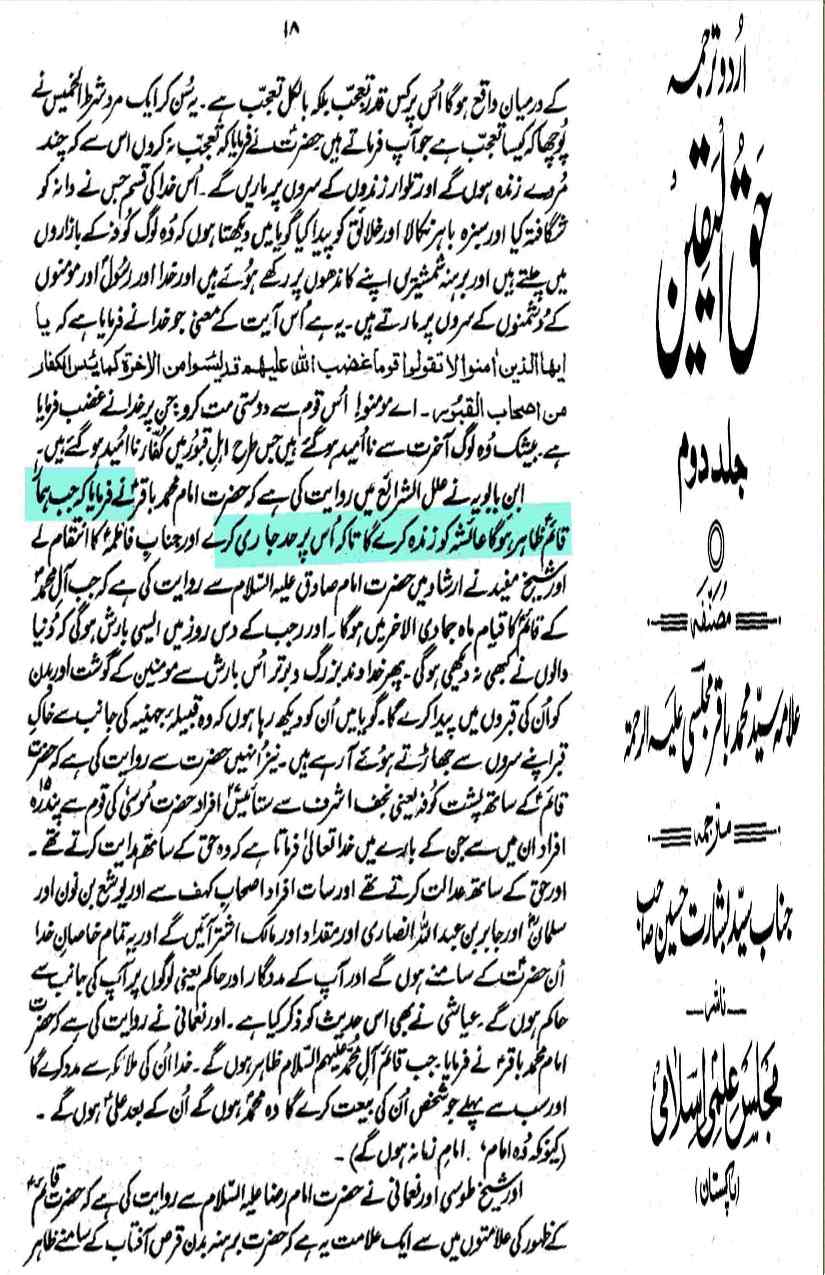 ۱۸
کے درمیان واقع ہوگا اُس پر کس قدر تعجب بلکہ بالکل تعجب ہے۔ یہ سُن کر ایک مرد شرط الخمیس نے
پُوچھا کہ کیسا تعجب ہے جو آپ فرماتے ہیں حضرتؑ نے فرمایا کہ تعجب نہ کروں اس سے کہ چند
مُردے زندہ ہوں گے اور تلوار زندوں کے سروں پر ماریں گے۔ اُس خدا کی قسم جس نے دانہ کو
شگافتہ کیا اور سبزہ باہر نکالا اور خلائق کو پیدا کیا گویا میں دیکھتا ہوں کہ وُہ لوگ کُوفہ کے بازاروں
میں چلتے ہیں اور برہنہ شمشیریں اپنے کاندھوں پر رکھے ہُوئے ہیں اور خدا اور رسُولؐ اور مومنوں
کے دُشمنوں کے سروں پر مارتے ہیں۔ یہ ہے اُس آیت کے معنی جو خدا نے فرمایا ہے کہ یا
ایھا الذین اٰمنوا لا تقولوا قوما غضب اللہ علیھم قد یئسوا من الاٰخرۃ کما یئس الکفار
من اصحاب القبور۔ اے مومنو! اُس قوم سے دوستی مت کرو جن پر خدا نے غضب فرمایا
ہے۔ بیشک وُہ لوگ آخرت سے نا اُمید ہوگئے ہیں جس طرح اہلِ قبور میں کُفّار نا اُمید ہوگئے ہیں۔
ابن بابویہ نے علل الشرائع میں روایت کی ہے کہ حضرت امام محمد باقرؑ نے فرمایا کہ جب ہمارا
قائمؑ ظاہر ہوگا عائشہ کو زندہ کرے گا تاکہ اُس پر حد جاری کرے اور جنابِ فاطمہؑ کا انتقام لے
اور شیخ مفید نے ارشاد میں حضرت امام صادق علیہ السّلام سے روایت کی ہے کہ جب آلِ محمدؐ
کے قائمؑ کا قیام ماہ جمادی الاخر میں ہوگا۔ اور رجب کے دس روز میں ایسی بارش ہوگی کہ دُنیا
والوں نے کبھی نہ دیکھی ہوگی۔ پھر خداوند بزرگ و برتر اُس بارش سے مومنین کے گوشت اور بدن
کو اُن کی قبروں میں پیدا کرے گا۔ گویا میں اُن کو دیکھ رہا ہوں کہ وہ قبیلہ جہنیہ کی جانب سے خاکِ
قبر اپنے سروں سے جھاڑتے ہوئے آ رہے ہیں۔ نیز اُنہیں حضرت سے روایت کی ہے کہ حضرت
قائمؑ کے ساتھ پشت کوفہ یعنی نجف اشرف سے ستائیسؔ افراد حضرت مُوسٰی کی قوم سے پندرہ ۱۵
افراد ان میں سے جن کے بارے میں خدا تعالیٰ فرماتا ہے کہ وہ حق کے ساتھ ہدایت کرتے تھے۔
اور حق کے ساتھ عدالت کرتے تھے اور سات افراد اصحابِ کہف سے اور یوشع بن نون اور
سلمانؓ اور جابر بن عبد اللہ انصاری اور مقداد اور مالک اشتر آئیں گے اور یہ تمام خاصانِ خدا
اُن حضرتؑ کے سامنے ہوں گے اور آپ کے مددگار اور حاکم یعنی لوگوں پر آپ کی جانب سے
حاکم ہوں گے۔ عیاشی نے بھی اس حدیث کو ذکر کیا ہے۔ اور نعمانی نے روایت کی ہے کہ حضرت
امام محمد باقرؑ نے فرمایا۔ جب قائم آلِ محمد علیہم السّلام ظاہر ہوں گے۔ خدا اُن کی ملائکہ سے مدد کرے گا
اور سب سے پہلے جو شخص اُن کی بیعت کرے گا وہ محمدؐ ہوں گے اُن کے بعد علیؑ ہوں گے۔
(کیونکہ وُہ امام، امامِ زمانہ ہوں گے)۔
اور شیخ طوسی اور نعمانی نے حضرت امام رضا علیہ السّلام سے روایت کی ہے کہ حضرت قائمؑ
کے ظہور کی علامتوں میں سے ایک علامت یہ ہے کہ حضرت برہنہ بدن قرصِ آفتاب کے سامنے ظاہر
اُردو ترجمہ
حَقُّ الیَقِین
جلد دوم
مُصَنّفہ
علامہ سیّد محمد باقر مجلسی علیہ الرحمۃ
مترجمہ
جناب سیّد بشارت حسین صاحب
ناشر
مجلسِ علمی اسلامی
(پاکستان)